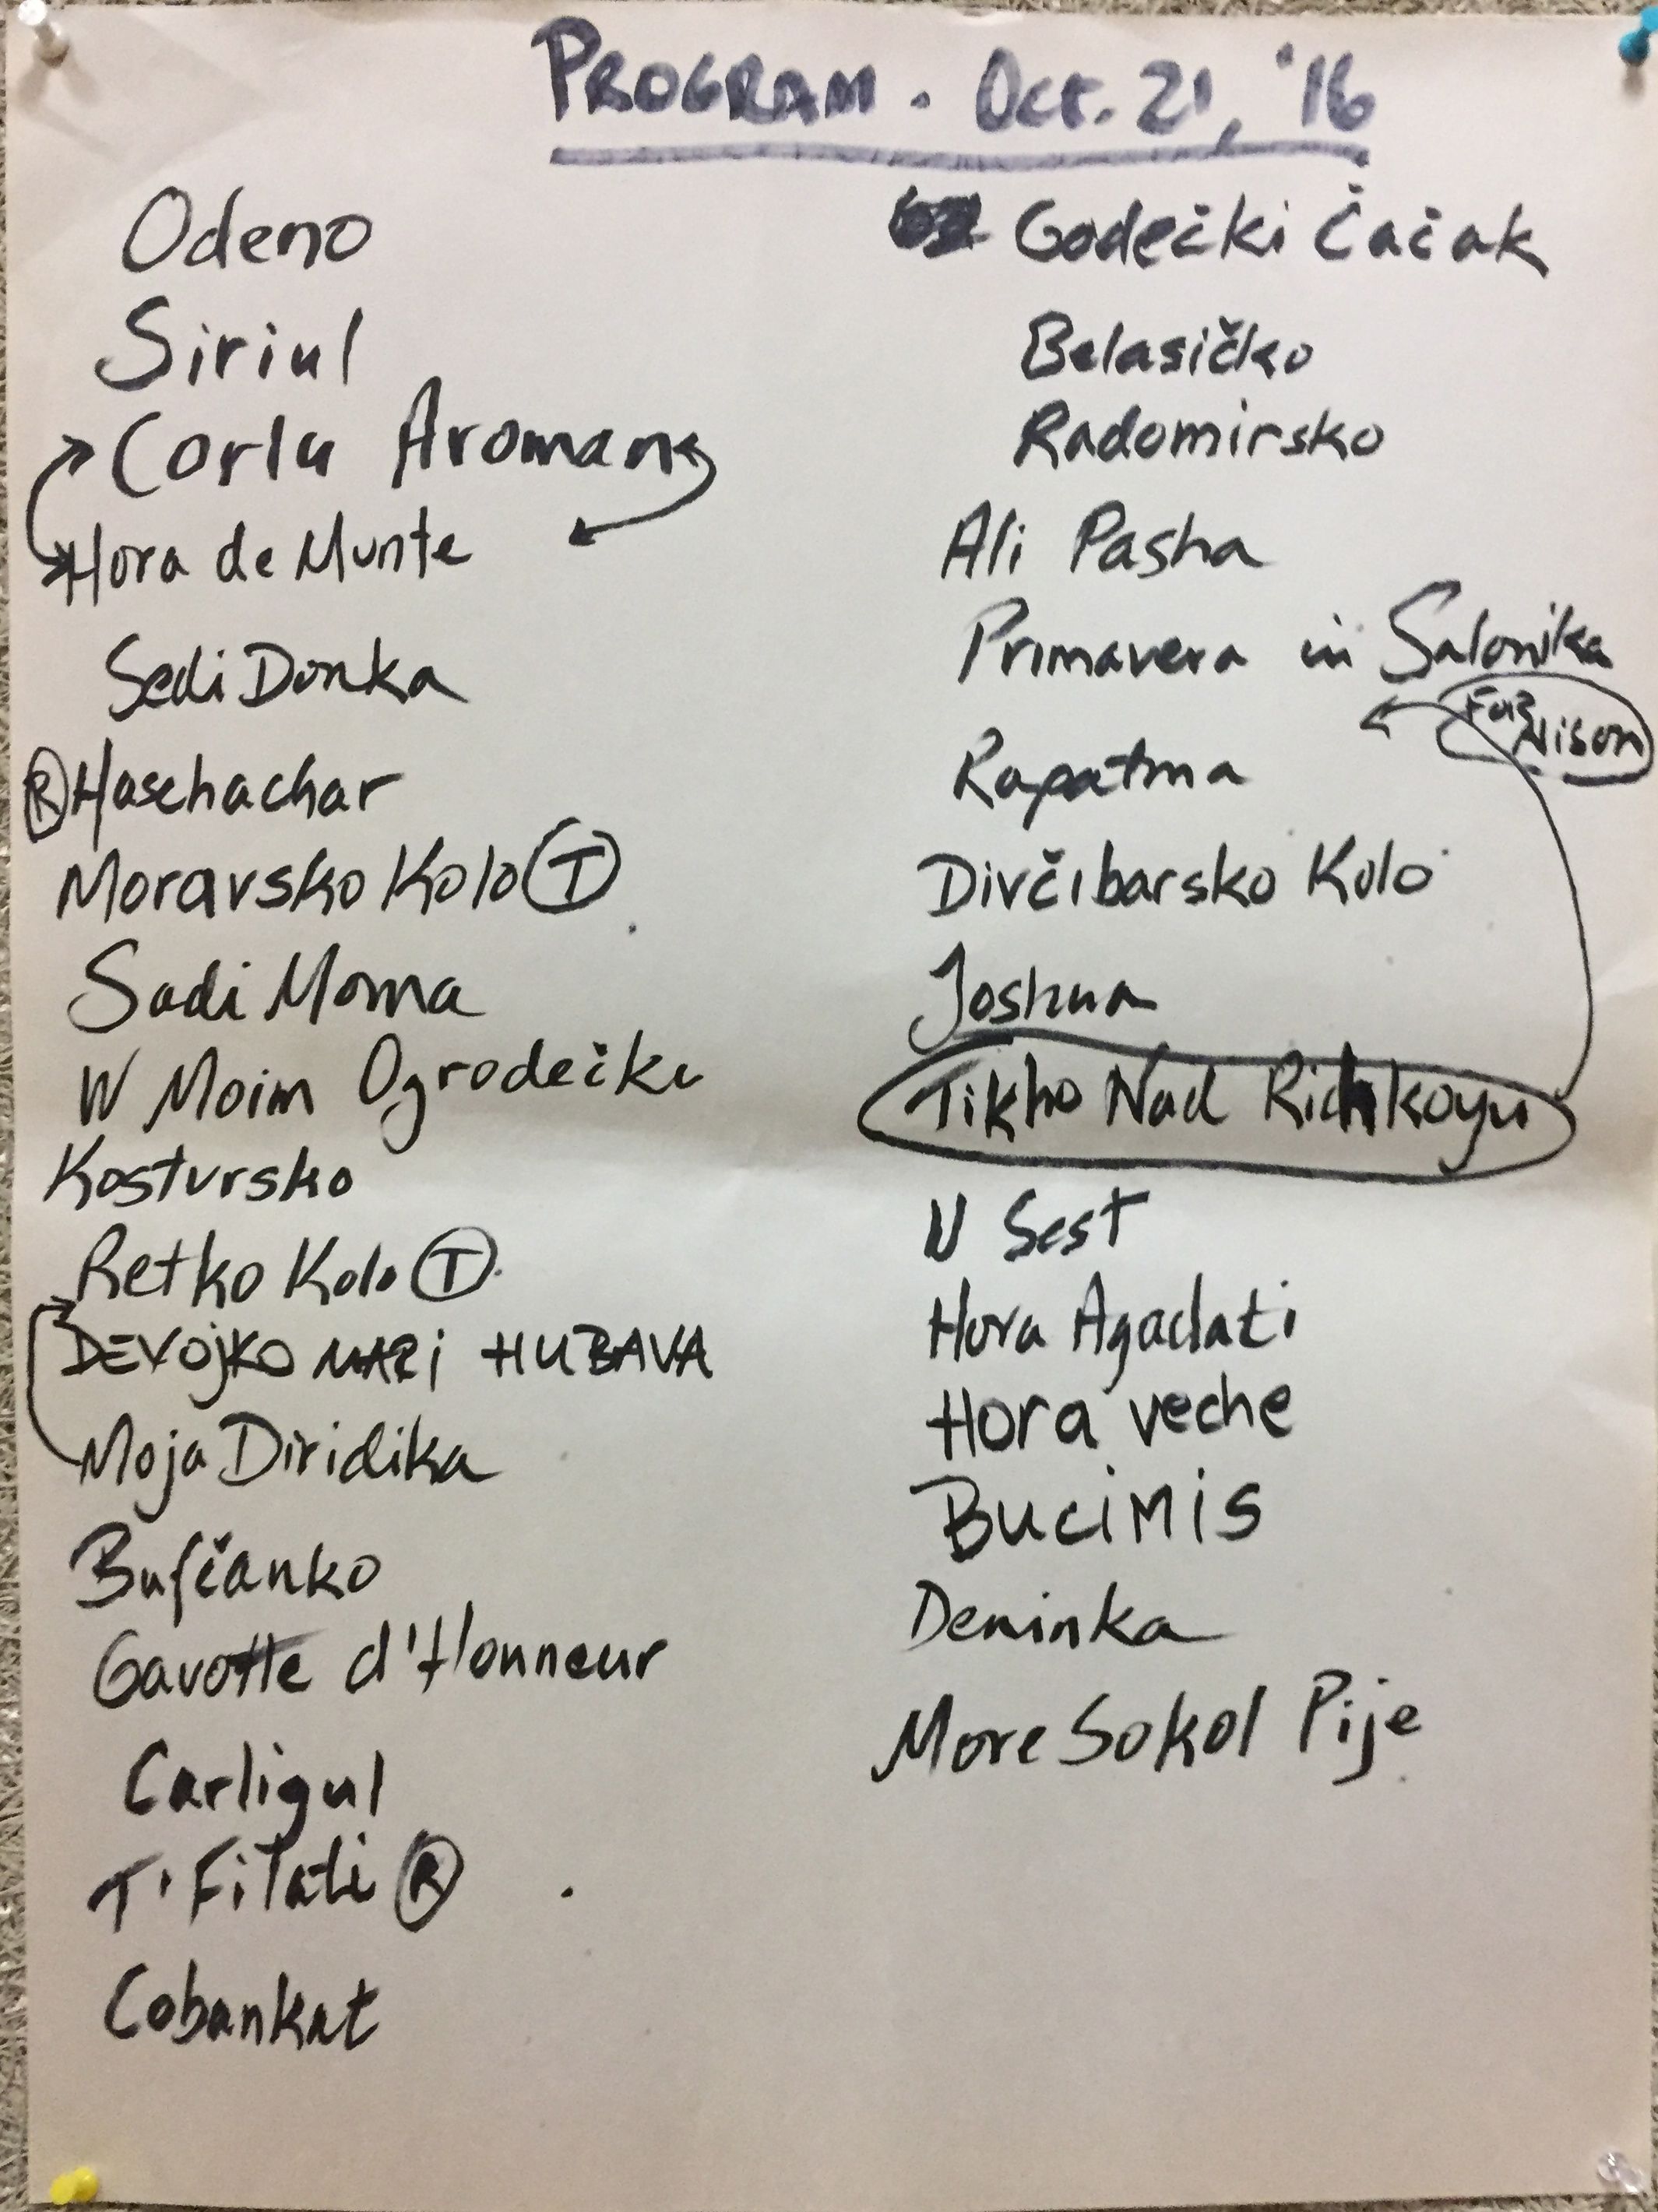 PROGRAM. Oct. 21, '16
Odeno
Siriul
Corlu Aromans
Hora de Munte
Sedi Donka
Ⓡ Hasehachar
Moravsko Kolo Ⓣ
Sadi Moma
W Moim Ogrodečku
Kostursko
Retko Kolo Ⓣ
DEVOJKO MARI HUBAVA
Moja Diridika
Bufčanko
Gavotte d'Honneur
Carligul
T'Filati Ⓡ
Cobankat
Godečki Čačak
Belasičko
Radomirsko
Ali Pasha
Primavera in Salonika
For Nison
Rapatma
Divčibarsko Kolo
Joshua
Tikho Nad Richkoyu
U Sest
Hora Agadati
Hora veche
BuciMis
Deninka
More Sokol Pije